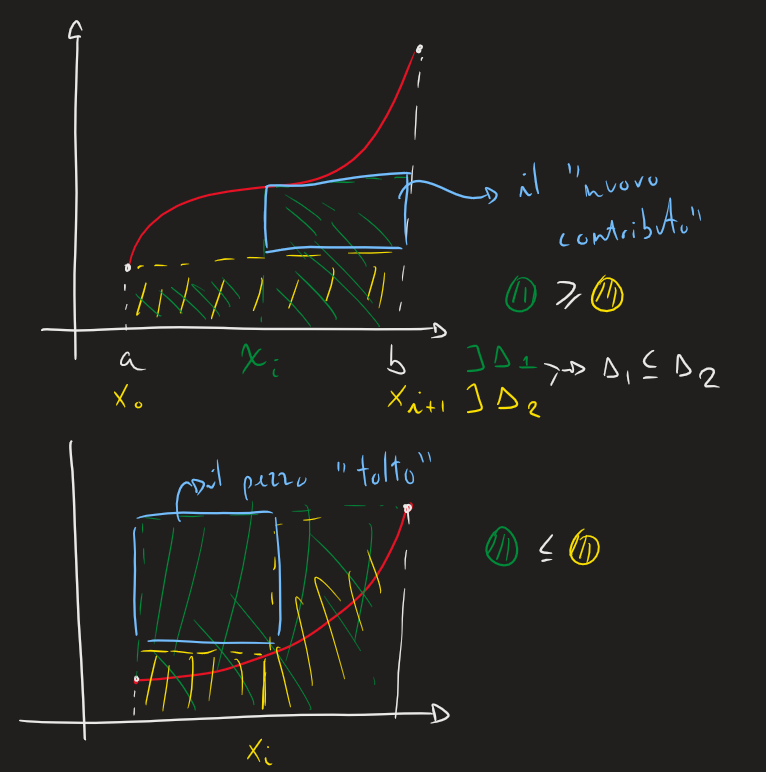 il "nuovo
contributo"
≥
a x_i b ] Δ_1 → Δ_1 ⊆ Δ_2
x_0 x_{i+1} ] Δ_2
il pezzo "tolto"
≤
x_i